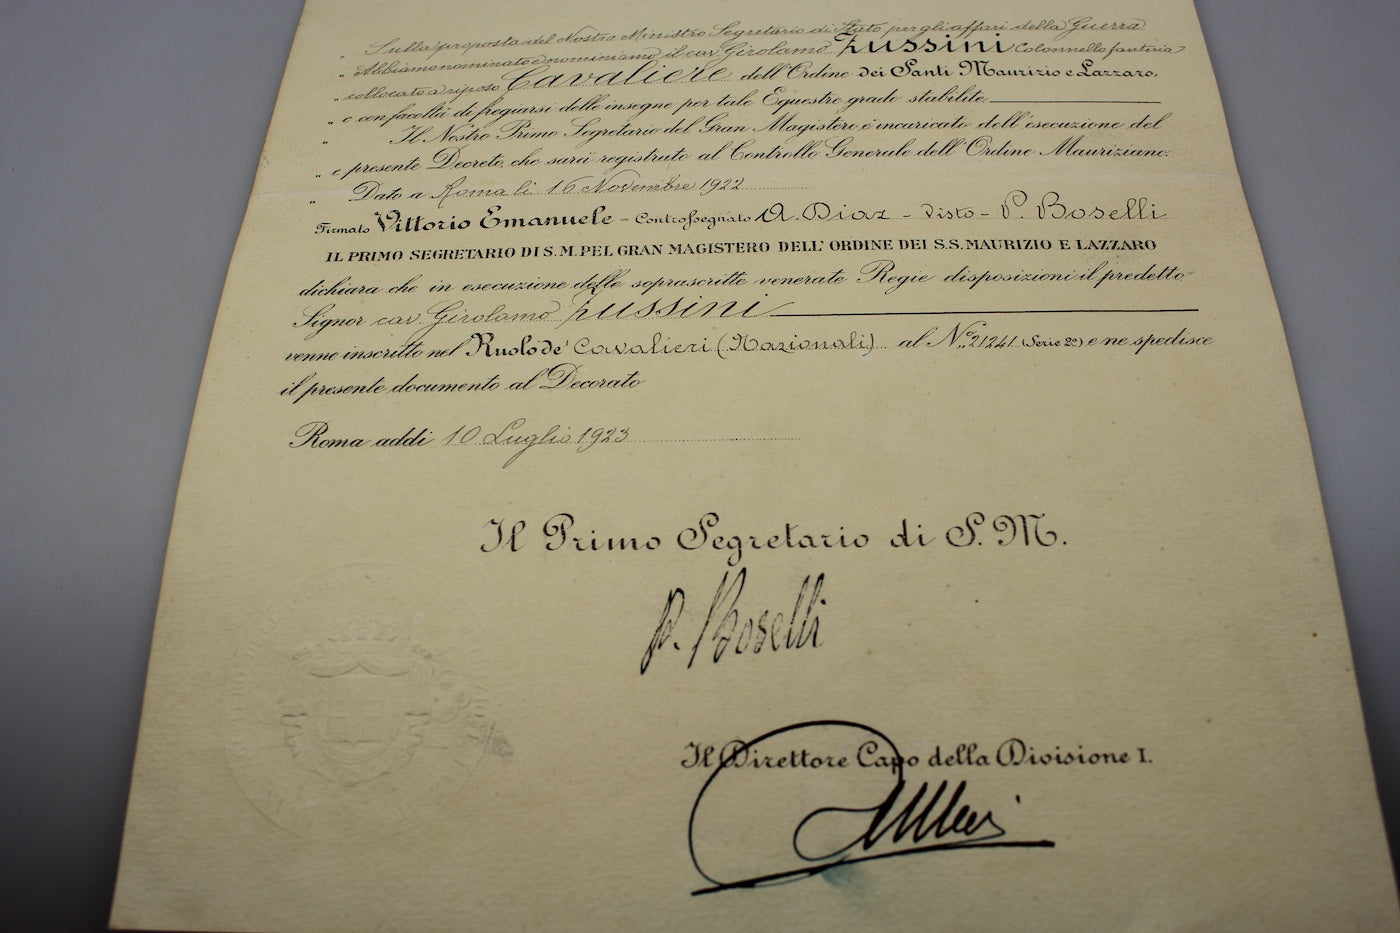 „ Sulla proposta del Nostro Ministro Segretario di Stato per gli affari della Guerra
„ Abbiamo nominato e nominiamo il cav. Girolamo Zussini Colonnello fanteria
„ collocato a riposo Cavaliere dell'Ordine dei Santi Maurizio e Lazzaro,
„ e con facoltà di fregiarsi delle insegne per tale Equestre grado stabilite.
„ Il Nostro Primo Segretario del Gran Magistero è incaricato dell'esecuzione del
„ presente Decreto, che sarà registrato al Controllo Generale dell'Ordine Mauriziano.
„ Dato a Roma li 16 Novembre 1922
Firmato Vittorio Emanuele - Controssegnato A. Diaz - Visto - P. Boselli
IL PRIMO SEGRETARIO DI S. M. PEL GRAN MAGISTERO DELL' ORDINE DEI S.S. MAURIZIO E LAZZARO
dichiara che in esecuzione delle soprascritte venerate Regie disposizioni il predetto
Signor cav. Girolamo Zussini
venne inscritto nel Ruolo de' Cavalieri (Nazionali) al N.º 21241 (Serie 2ª) e ne spedisce
il presente documento al Decorato
Roma addì 10 Luglio 1923
Il Primo Segretario di S. M.
P. Boselli
Il Direttore Capo della Divisione I.